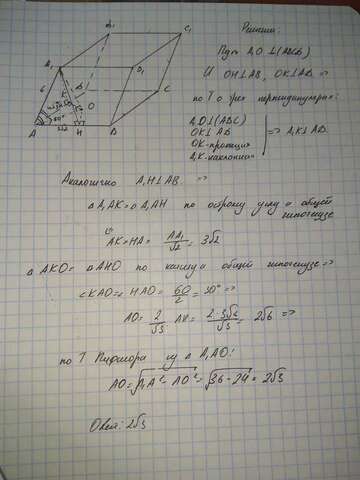 B₁
C₁
A₁
D₁
6
K
B
O
C
60°
A
H
D
Решение:
Пусть A₁O⊥(ABCD)
и OH⊥AB, OK⊥AD =>
по Т о трех перпендикулярах:
A₁O⊥(ABC)
OK⊥AD
OK-проекция
A₁K-наклонная
=> A₁K⊥AD.
Аналогично A₁H⊥AB. =>
△A₁AK=△A₁AH по острому углу и общей
гипотенузе
⇓
AK=HA= AA₁/√2 = 3√2
△AKO=△AHO по катету и общей гипотенузе =>
∠KAO=∠HAO= 60/2 = 30° =>
AO= 2/√3 AK= 2·3√2/√3 = 2√6 =>
по Т Пифагора из △A₁AO:
AO=√A₁A²-AO²=√36-24= 2√3
Ответ: 2√3